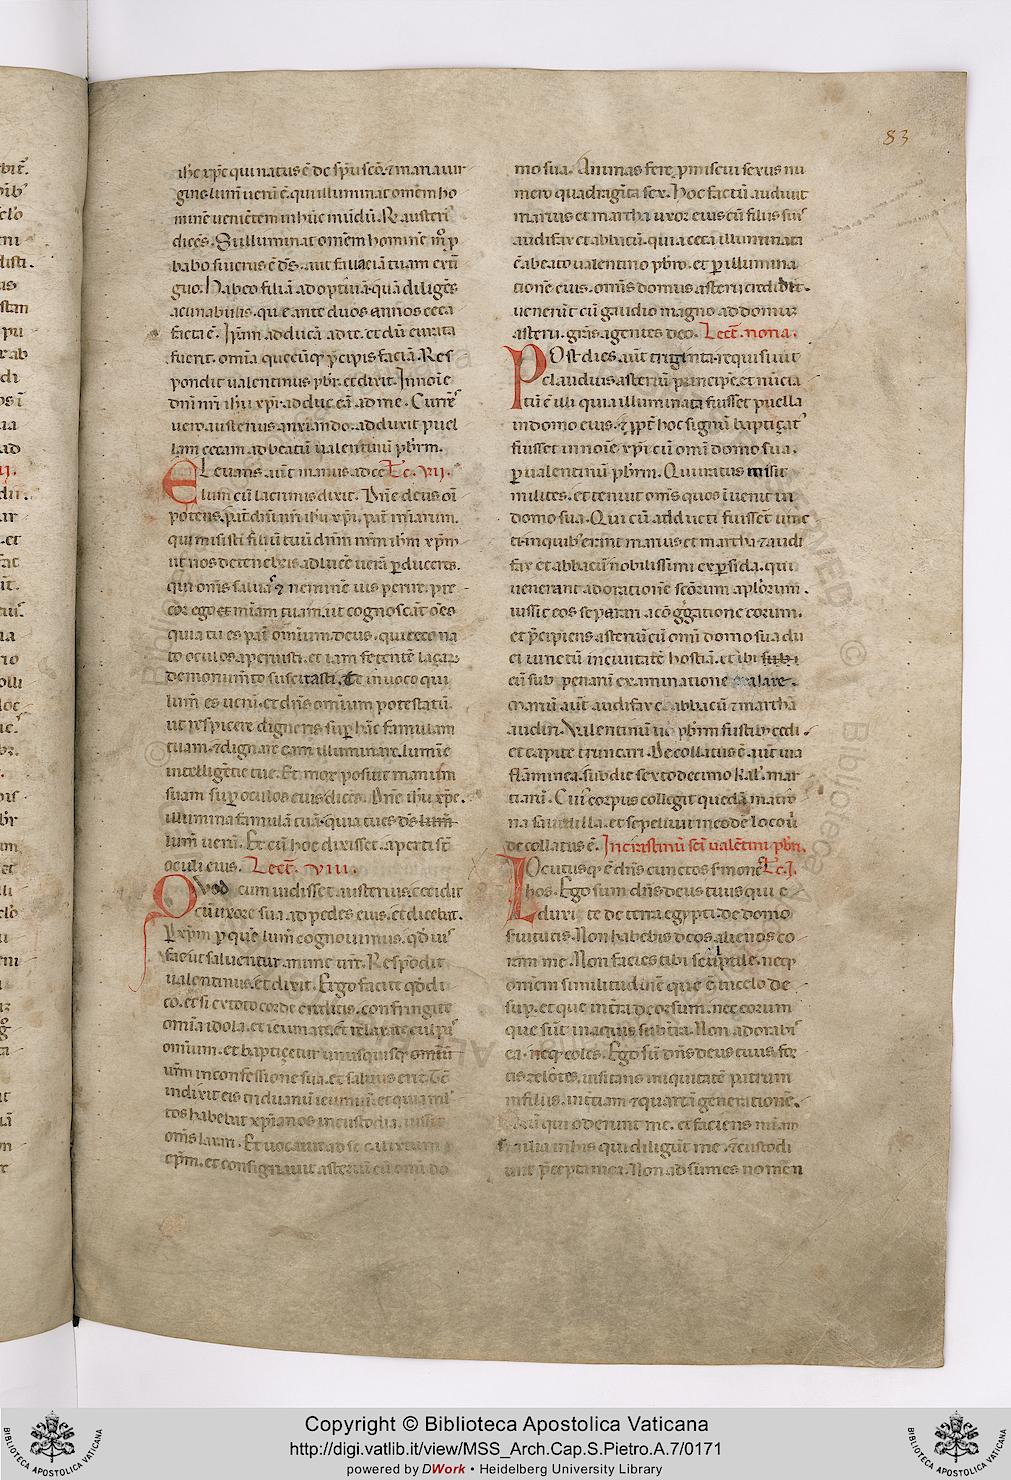 83
ihu xpe qui natus ē de spū scō ⁊ maria uir
gine lum̄ uerū ē qui illuminat omēm ho
minē uenientem in hūc mūdū. R̄ austeri
dicēs. Si illuminat omēm hominē
babo si uerus ē d̄s aut fallaciā tuam exti
guo. Habeo filiā adoptiuā quā diligēs
a cunabulis que ante duos annos ceca
facta ē. Ip̄am adducā ad te et dū curata
fuerit omīa quecūq̄ p̄cipis faciā. Res
pondit ualentinus pbr̄ et dixit. In noīe
dn̄i nr̄i ihu xp̄i adduc eā ad me. Currēs
uero austerius anxiando adduxit puel
lam cecam ad beatū ualentinū pbr̄m.
Eleuans aūt manus ad ce Lc̄. vij.
lum cū lacrimis dixit. Dn̄e deus oī
potens pat̄ dn̄i nr̄i ihu xp̄i pat̄ mīarum
qui misisti filiū tuū dn̄m nr̄m ihm̄ xp̄m
ut nos de tenebris ad lucē uerā perduceres
quia tu es pat̄ omīum deus qui ceco na
to oculos aperuisti et iam fetentē lazarū
de monumento suscitasti. Te inuoco qui
lum̄ es uerū et dn̄s omīum potestatū
ut respicere digneris sup̄ hāc famulam
tuam ⁊ dignare eam illuminare lumīe
intelligētie tue. Et mox posuit manum
suam sup̄ oculos eius dicēs. Dn̄e ihu xpe
illumina famulā tuā quia tu es d̄s lum̄
lum̄ uerū. Et cū hoc dixisset aperti st̄
oculi eius. Lect̄. viii.
Quod cum uidisset austerius cecidit
cū uxore sua ad pedes eius et dicebat.
P̄ xp̄m p̄ quē lum̄ cognouimus
faciat saluentur anime nr̄e. Respōdit
ualentinus et dixit. Ergo facite qd̄ di
co et si ex toto corde creditis confringite
omīa idola et ieiunate et relaxate culpas
omīum et baptizetur unusquisq̄ omīū
urm̄ in confessione sua et saluus erit. Tc̄
indixit eis triduanū ieiuniū et quia mul
tos habebat xp̄ianos in custodia iussit
omīs laxari. Et uocauit ad se
ep̄m et consignauit asteriū cū omī do
mo sua. Animas fere p̄miscui sexus nu
mero quadraginta sex. Hoc factū audiunt
marius et martha uxor eius cū filiis suis
audifax et abbacū quia ceca illuminata
ē a beato ualentino pbr̄o et p̄ illumina
tionē eius omīs domus asterii credidit
uenerūt cū gaudio magno ad domum
asterii grās agentes deo. Lect̄. nona.
Post dies aūt triginta requisiuit
claudius asteriū principē et nūcia
tū ē illi quia illuminata fuisset puella
in domo eius ⁊ ppt̄ hoc signū baptizat'
fuisset in noīe xp̄i cū omī domo sua
p̄ ualentinū pbr̄m. Qui iratus misit
milites et tenuit omīs quos īuenit in
domo sua. Qui cū adducti fuissēt uinc
ti in quib; erant marius et martha ⁊ audi
fax et abbacū nobilissimi ex persida qui
uenerant adorationē scōrum ap̄lorum.
iussit eos separari a cōgregatione eorum.
et p̄cipiens asteriū cū omī domo sua du
ci iunctū in ciuitatē hostiā et ibi
cū sub penarū examinatione
Mariū aūt audifax et abbacū ⁊ martha
audiri. Valentinū uō pbr̄m fustib; cedi
et capite truncari. Decollatus ē aūt uia
flaminea sub die sextodecimo kal' mar
tiarū. Cui' corpus collegit quedā matro
na sauinilla et sepeliuit in eodē loco ubi
decollatus ē. In crastinū scī ualētini pbr̄i.
Locutusq̄ ē dn̄s cunctos sermonēs Lc̄. I.
hos. Ego sum dn̄s deus tuus qui e
duxi te de terra egypti de domo
seruitutis. Non habebis deos alienos co
ram me. Non facies tibi sculptile neq̄
omēm similitudinē que ē in celo de
sup̄ et que in tr̄a deorsum nec eorum
que sūt in aquis sub tr̄a. Non adorabis
ea neq̄ coles. Ego sū dn̄s deus tuus for
tis zelotes uisitans iniquitatē patrum
in filiis in tiam ⁊ quartā generationē
qui oderunt me et faciens miam
in milia in his qui diligūt me ⁊ custodi
unt p̄cepta mea. Non adsumes nomen
Copyright © Biblioteca Apostolica Vaticana
http://digi.vatlib.it/view/MSS_Arch.Cap.S.Pietro.A.7/0171
powered by DWork • Heidelberg University Library
BIBLIOTECA APOSTOLICA VATICANA
BIBLIOTECA APOSTOLICA VATICANA